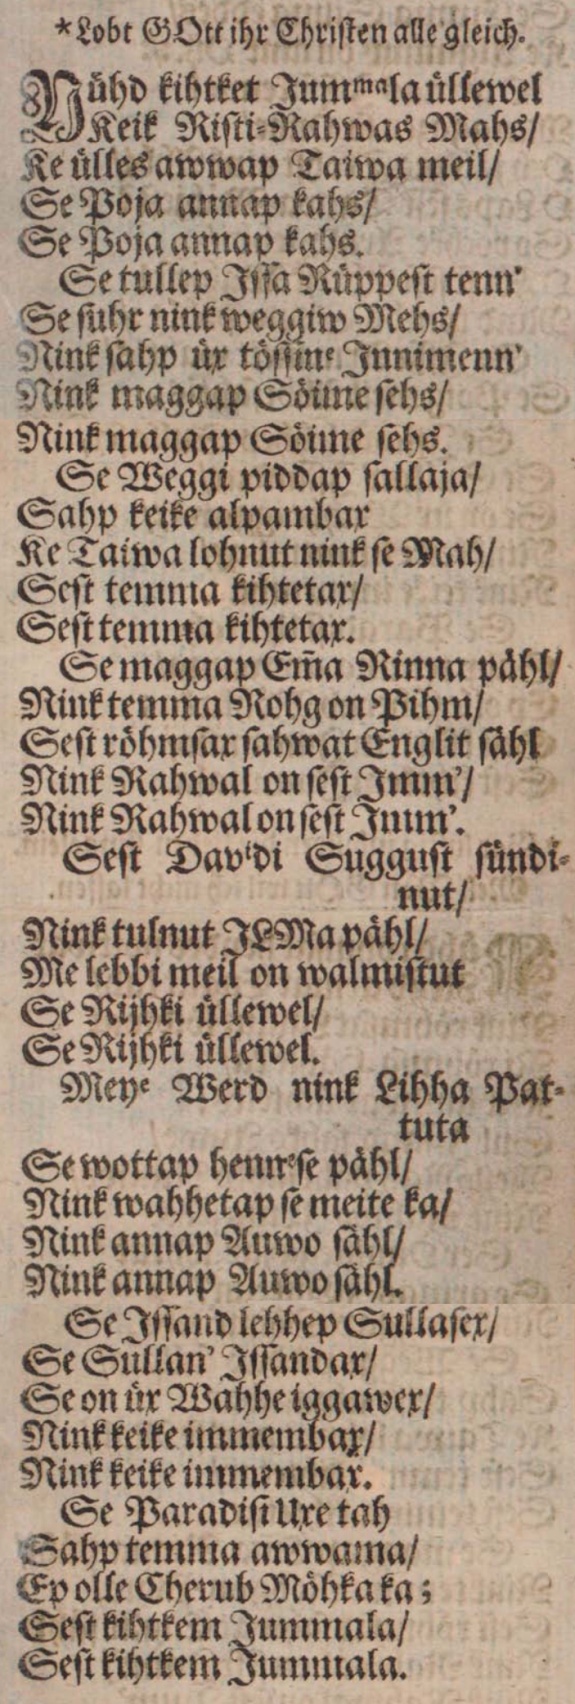 *Lobt GOtt ihr Christen alle gleich.
Nühd kihtket Jummala üllewel
Keik Risti-Rahwas Mahs/
Ke ülles awwap Taiwa meil/
Se Poja annap kahs/
Se Poja annap kahs.
Se tullep Issa Rüppest tenn'
Se suhr nink weggiw Mehs/
Nink sahp üx tössine Innimenn'
Nink maggap Söime sehs/
Nink maggap Söime sehs.
Se Weggi piddap sallaja/
Sahp keike alpambax
Ke Taiwa lohnut nink se Mah/
Sest temma kihtetax/
Sest temma kihtetax.
Se maggap Em̃a Rinna pähl/
Nink temma Rohg on Pihm/
Sest röhmsax sahwat Englit sähl
Nink Rahwal on sest Imm'/
Nink Rahwal on sest Imm'.
Sest Davidi Suggust sündi-
nut/
Nink tulnut JLMa pähl/
Me lebbi meil on walmistut
Se Rijhki üllewel/
Se Rijhki üllewel.
Meye Werd nink Lihha Pat-
tuta
Se wottap hennese pähl/
Nink wahhetap se meite ka/
Nink annap Auwo sähl/
Nink annap Auwo sähl.
Se Issand lehhep Sullasex/
Se Sullan' Issandax/
Se on üx Wahhe iggawex/
Nink keike immembax/
Nink keike immembax.
Se Paradisi Uxe tah
Sahp temma awwama/
Ep olle Cherub Möhka ka;
Sest kihtkem Jummala/
Sest kihtkem Jummala.